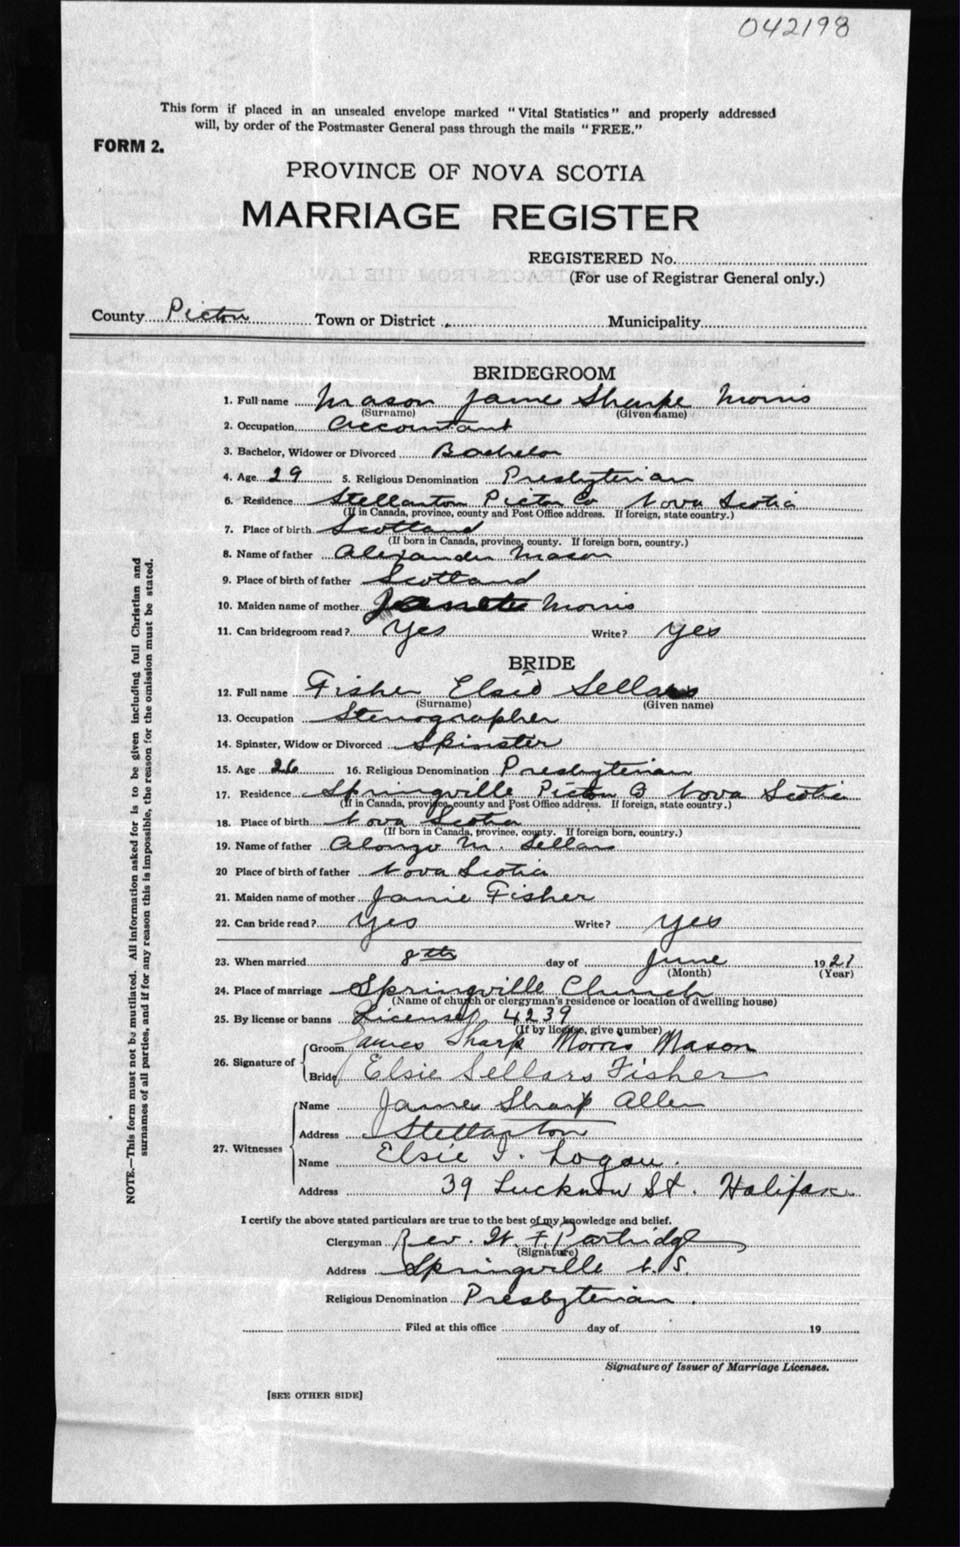 042198
This form if placed in an unsealed envelope marked "Vital Statistics" and properly addressed
will, by order of the Postmaster General pass through the mails "FREE."
FORM 2.
PROVINCE OF NOVA SCOTIA
MARRIAGE REGISTER
REGISTERED No.
(For use of Registrar General only.)
County Pictou Town or District Municipality
BRIDEGROOM
1. Full name Mason James Sharpe Morris
(Surname) (Given name)
2. Occupation Accountant
3. Bachelor, Widower or Divorced Bachelor
4. Age 29 5. Religious Denomination Presbyterian
6. Residence Stellarton Pictou Co Nova Scotia
(If in Canada, province, county and Post Office address. If foreign, state country.)
7. Place of birth Scotland
(If born in Canada, province, county. If foreign born, country.)
8. Name of father Alexander Mason
9. Place of birth of father Scotland
10. Maiden name of mother Morris
11. Can bridegroom read? Yes Write? Yes
BRIDE
12. Full name Fisher Elsie Sellars
(Surname) (Given name)
13. Occupation Stenographer
14. Spinster, Widow or Divorced Spinster
15. Age 26 16. Religious Denomination Presbyterian
17. Residence Springville Pictou Co Nova Scotia
(If in Canada, province, county and Post Office address. If foreign, state country.)
18. Place of birth Nova Scotia
(If born in Canada, province, county. If foreign born, country.)
19. Name of father Alonzo M. Sellars
20 Place of birth of father Nova Scotia
21. Maiden name of mother Janie Fisher
22. Can bride read? Yes Write? Yes
23. When married 8th day of June 1921
(Month) (Year)
24. Place of marriage Springville Church
(Name of church or clergyman's residence or location of dwelling house)
25. By license or banns License 4239
(If by license, give number)
26. Signature of
Groom James Sharp Morris Mason
Bride Elsie Sellars Fisher
27. Witnesses
Name James Sharp Allen
Address Stellarton
Name Elsie I. Logan.
Address 39 Lucknow St. Halifax
I certify the above stated particulars are true to the best of my knowledge and belief.
Clergyman Rev. W. F. Partridge
(Signature)
Address Springville N.S.
Religious Denomination Presbyterian.
Filed at this office day of 19
Signature of Issuer of Marriage Licenses.
[SEE OTHER SIDE]
NOTE.—This form must not be mutilated. All information asked for is to be given including full Christian and
surnames of all parties, and if for any reason this is impossible, the reason for the omission must be stated.